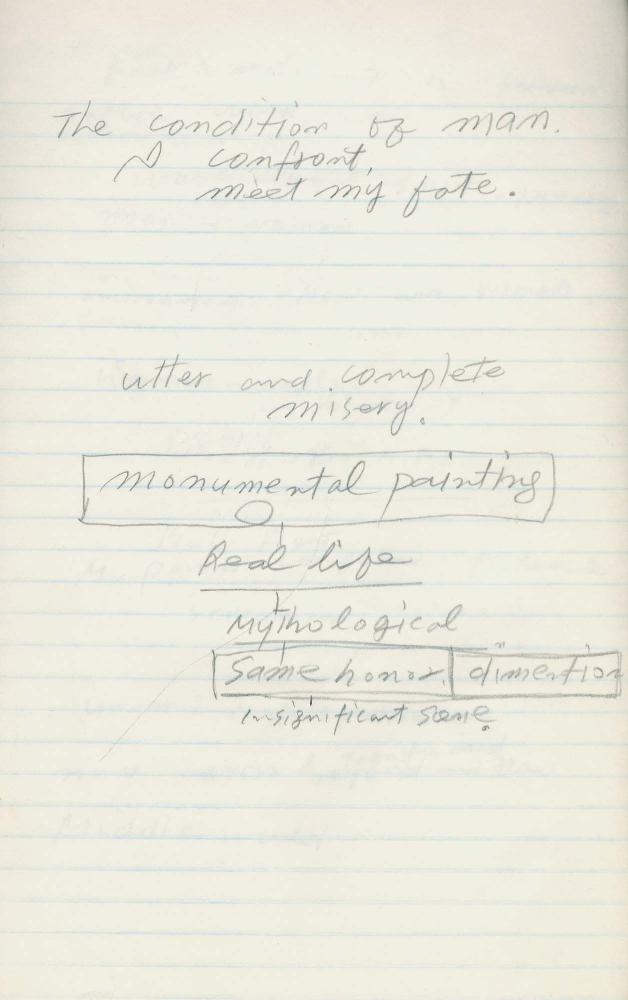 The condition of man.
I confront,
meet my fate.
utter and complete
misery.
monumental painting
Real life
Mythological
Same honor. dimention
insignificant scene.